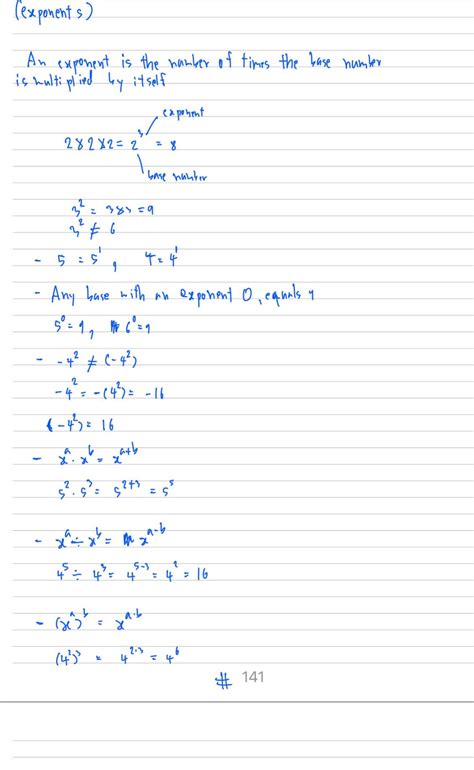 (exponents)
An exponent is the number of times the base number
is multiplied by itself
exponent
2×2×2 = 2³ = 8
base number
3² = 3×3 = 9
3² ≠ 6
- 5 = 5¹, 4 = 4¹
- Any base with an exponent 0, equals 1
5⁰ = 1, 6⁰ = 1
- -4² ≠ (-4²)
-4² = -(4²) = -16
(-4²) = 16
- xᵃ · xᵇ = xᵃ⁺ᵇ
5² · 5³ = 5²⁺³ = 5⁵
- xᵃ ÷ xᵇ = xᵃ⁻ᵇ
4⁵ ÷ 4³ = 4⁵⁻³ = 4² = 16
- (xᵃ)ᵇ = xᵃ·ᵇ
(4²)³ = 4²·³ = 4⁶
# 141